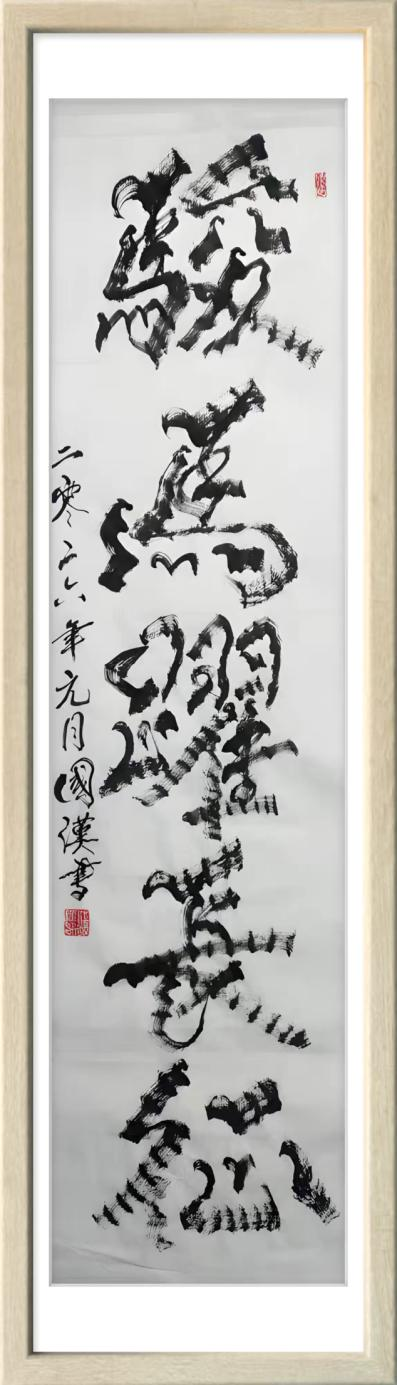 駿馬躍長
二零二六年元月國漢書